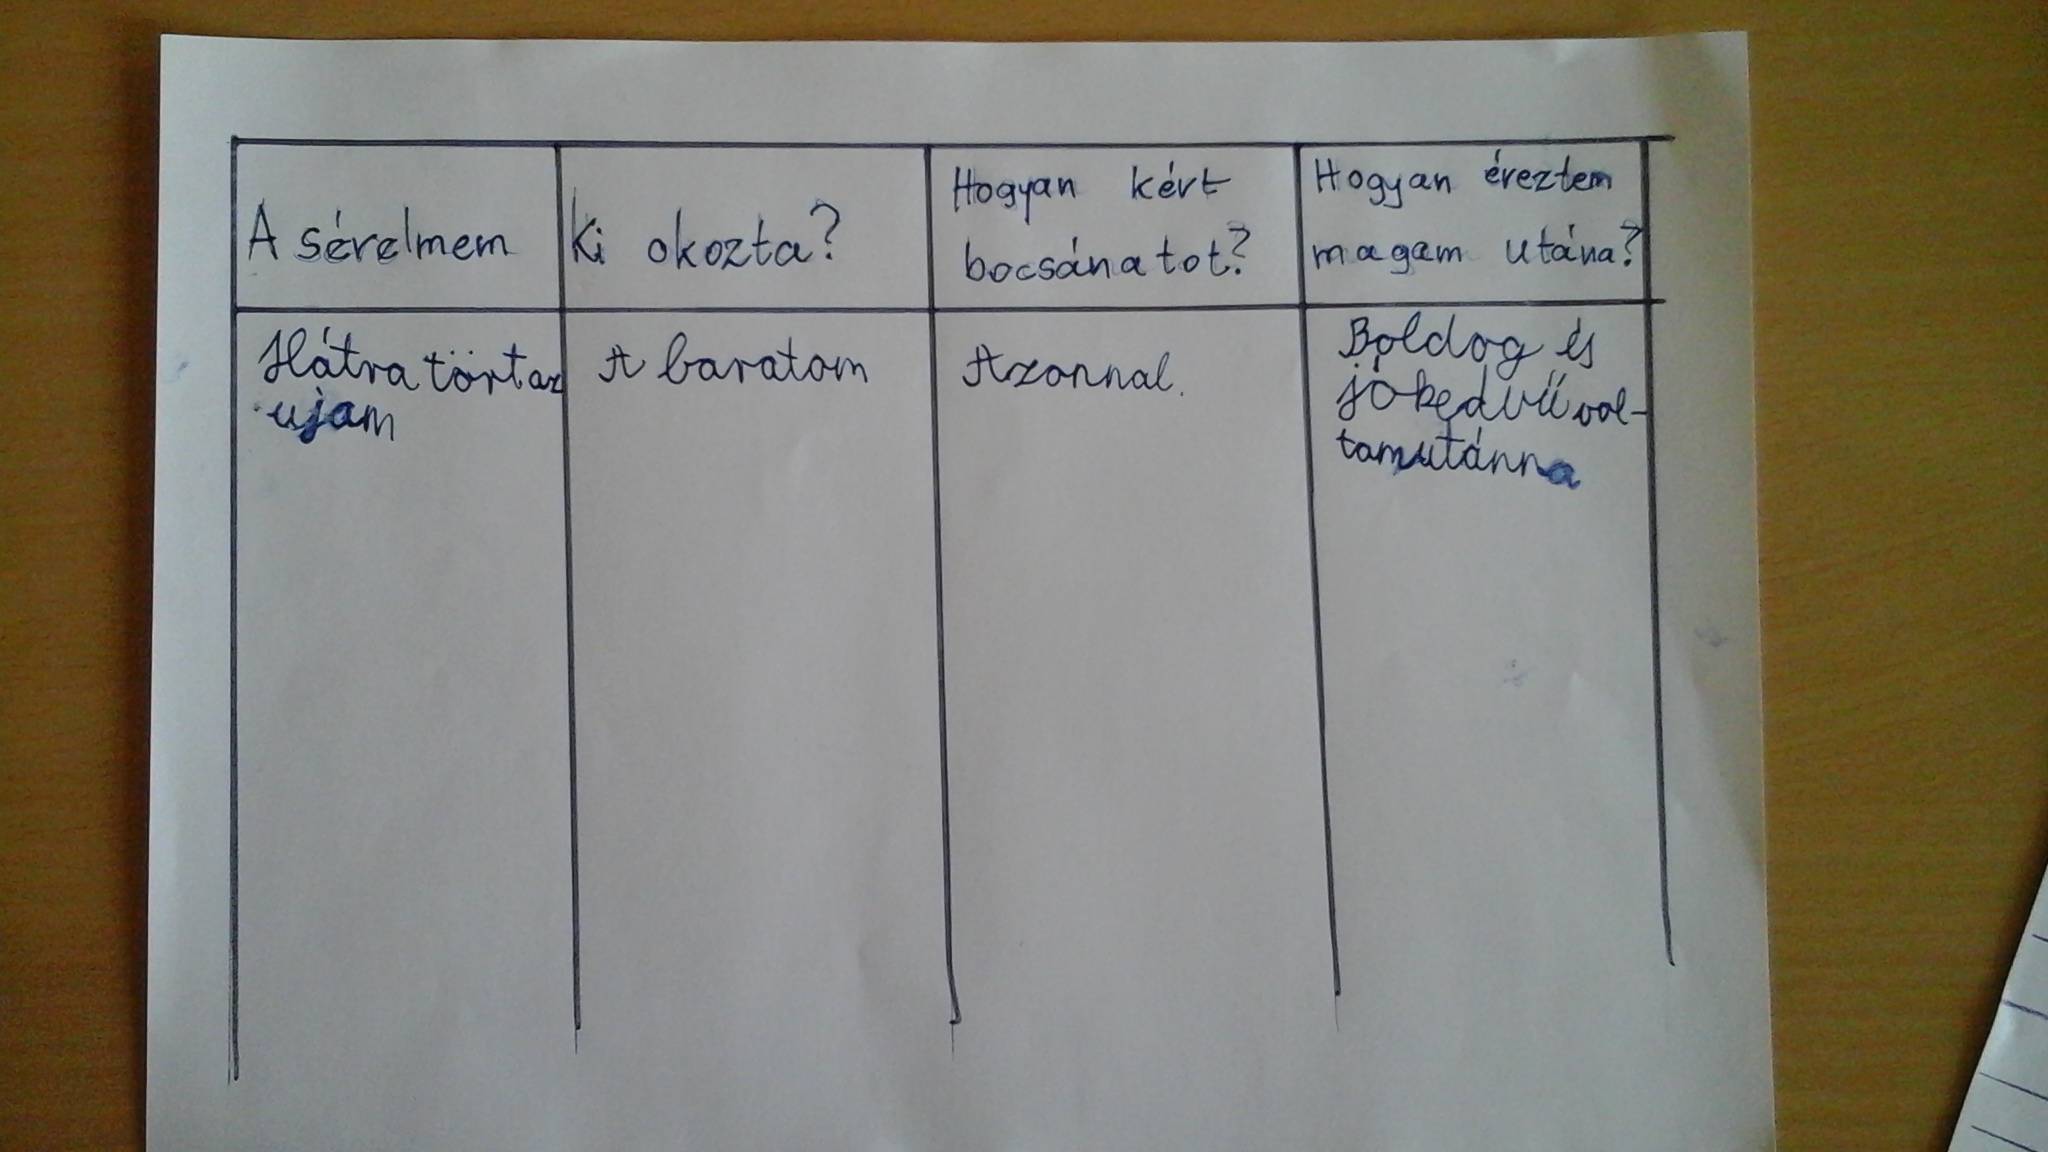 A sérelmem
Ki okozta?
Hogyan kért
bocsánatot?
Hogyan éreztem
magam utána?
Hátra törtaz
ujam
A baratom
Azonnal.
Boldog és
jókedvű vol-
tamutánna